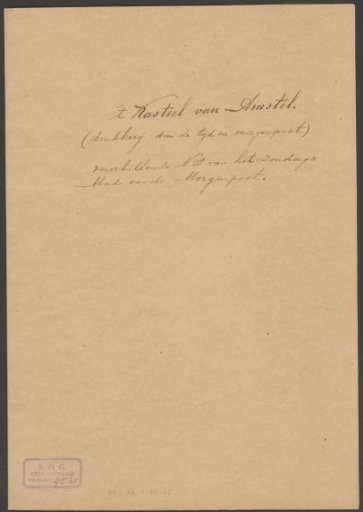 't Kasteel van Amstel.
(drukkerij van de tijd en morgenpost)
verschillende Nos van het zondags
blad van de Morgenpost.
K. O. G.